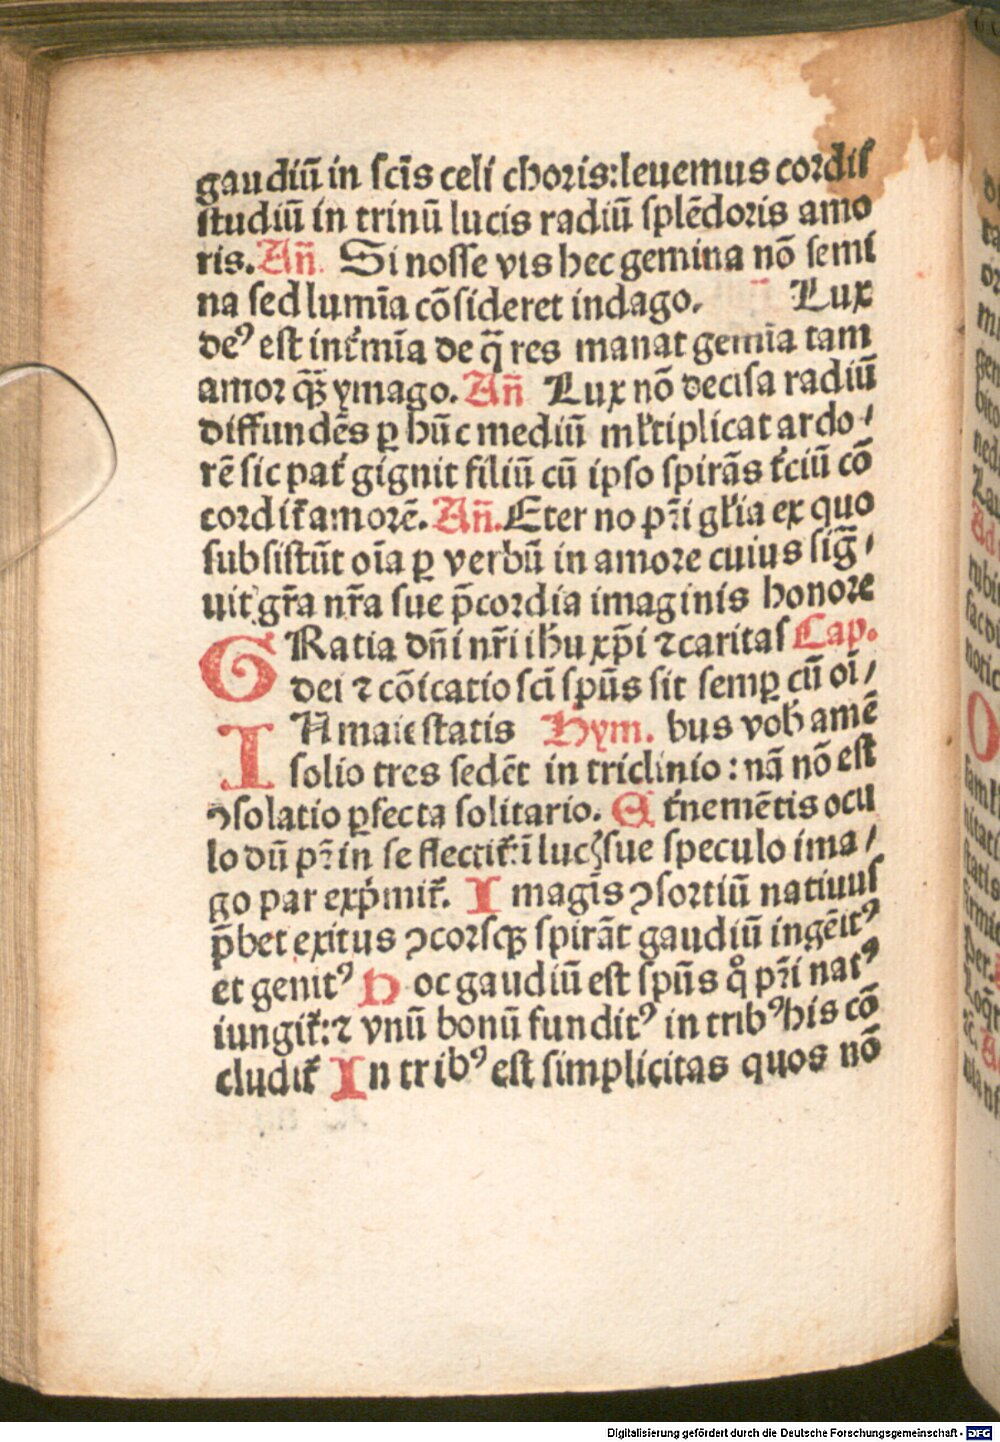 gaudiū in sct̄s celi choris: leuemus cordis
studiū in trinū lucis radiū splēdoris amo
ris. Añ. Si nosse vis hec gemina nō semi
na sed lumīa cōsideret indago. Lux
deꝰ est int̄mīa de q̄ res manat gemīa tam
amor qꝫ̄ ymago. Añ Lux nō decisa radiū
diffundēs ꝑ hūc mediū młtiplicat ardo/
rē sic pat̄ gignit filiū cū ipso spirās t̄ciū cō
cordit̄ amorē. Añ. Eterno pr̄i głia ex quo
subsistūt oīa ꝑ verbū in amore cuius siḡ/
uit gr̄a nr̄a sue p̄cordia imaginis honore
GRatia dn̄i nr̄i ihu xp̄i ⁊ caritas Cap.
dei ⁊ cōicatio sci sp̄ūs sit semꝑ cū oī/
IN maiestatis Hym. bus vob̄ amē
solio tres sedēt in triclinio: nā nō est
ꝯsolatio ꝑfecta solitario. Et̄ne mētis ocu
lo dū pr̄ in se flectit̄: ī lucꝫ sue speculo ima/
go par exp̄mit̄. I magīs ꝯsortiū natiuus
p̄bet exitus ꝯcorsqꝫ spirāt gaudiū ingēitꝰ
et genitꝰ H oc gaudiū est sp̄ūs qͦ pr̄i natꝰ
iungit̄: ⁊ vnū bonū funditꝰ in tribꝰ his cō
cludit̄ In tribꝰ est simplicitas quos nō
Digitalisierung gefördert durch die Deutsche Forschungsgemeinschaft - DFG